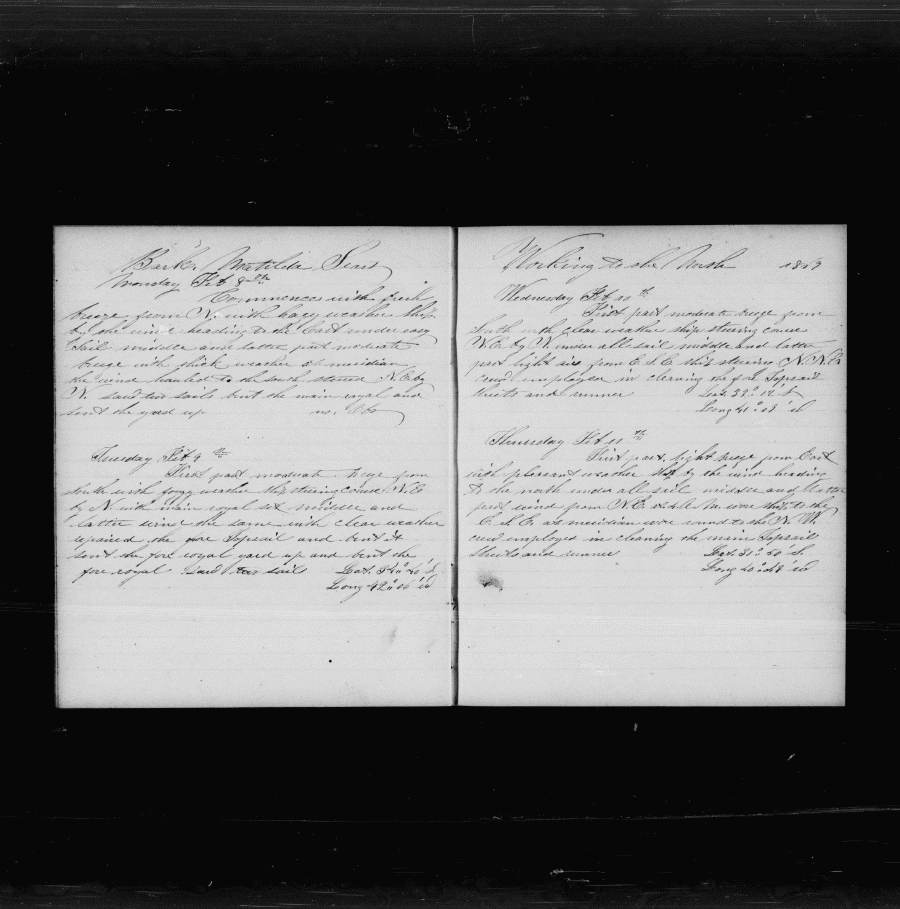 Bark Matilda Sears
Monday Feb 8th
Commences with fresh
breeze from N. with hazy weather ship
by the wind heading to the East under easy
sail middle and latter part moderate
breeze with thick weather at meridian
the wind hauled to the south steered N.E. by
N. saw two sails bent the main royal and
sent the yard up no. Obs
Tuesday Feb 9th
First part moderate breeze from
south with foggy weather ship steering course N.E.
by N with main royal set middle and
latter wind the same with clear weather
repaired the fore Topsail and bent it
sent the fore royal yard up and bent the
fore royal saw two sails Lat. 34° 40' S
Long 42° 06' W
Working to the North 18
Wednesday Feb 10th
First part moderate breeze from
South with clear weather ship steering course
N.E. by N under all sail middle and latter
part light airs from E.S.E. ship steering N.N.E.
crew employed in cleaning the fore Topsail
sheets and runner Lat. 33° S
Long 41° W
Thursday Feb 11th
First part light breeze from East
with pleasant weather ship by the wind heading
to the north under all sail middle and latter
part wind from N.E. wore ship to the
E.S.E. at meridian wore round to the N.W.
crew employed in cleaning the main Topsail
Sheets and runner Lat. 31° 50' S.
Long 40° 48' W